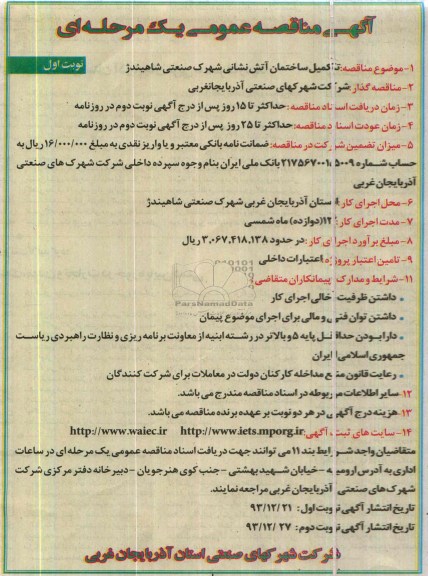 آگهی مناقصه عمومی یک مرحله ای
نوبت اول
۱- موضوع مناقصه: تکمیل ساختمان آتش نشانی شهرک صنعتی شاهیندژ
۲- مناقصه گذار: شرکت شهرکهای صنعتی آذربایجانغربی
۳- زمان دریافت اسناد مناقصه: حداکثر تا ۱۵ روز پس از درج آگهی نوبت دوم در روزنامه
۴- زمان عودت اسناد مناقصه: حداکثر تا ۲۵ روز پس از درج آگهی نوبت دوم در روزنامه
۵- میزان تضمین شرکت در مناقصه: ضمانت نامه بانکی معتبر و یا واریز نقدی به مبلغ ۱۶/۰۰۰/۰۰۰ ریال به
حساب شماره بانک ملی ایران بنام وجوه سپرده داخلی شرکت شهرک های صنعتی
آذربایجان غربی
۶- محل اجرای کار: استان آذربایجان غربی شهرک صنعتی شاهیندژ
۷- مدت اجرای کار: ۱۲(دوازده) ماه شمسی
۸- مبلغ برآورد اجرای کار: در حدود ۳،۰۶۷،۴۱۸،۱۳۸ ریال
۹- تامین اعتبار پروژه: اعتبارات داخلی
۱۱- شرایط و مدارک پیمانکاران متقاضی:
• داشتن ظرفیت خالی اجرای کار
• داشتن توان فنی و مالی برای اجرای موضوع پیمان
• دارا بودن حداقل پایه ۵ و بالاتر در رشته ابنیه از معاونت برنامه ریزی و نظارت راهبردی ریاست
جمهوری اسلامی ایران
• رعایت قانون منع مداخله کارکنان دولت در معاملات برای شرکت کنندگان
۱۲- سایر اطلاعات مربوطه در اسناد مناقصه مندرج می باشد.
۱۳- هزینه درج آگهی در هر دو نوبت بر عهده برنده مناقصه می باشد.
۱۴- سایت های ثبت آگهی: http://www.iets.mporg.ir http://www.waiec.ir
متقاضیان واجد شرایط بند ۱۱ می توانند جهت دریافت اسناد مناقصه عمومی یک مرحله ای در ساعات
اداری به آدرس ارومیه - خیابان شهید بهشتی - جنب کوی هنرجویان - دبیرخانه دفتر مرکزی شرکت
شهرک های صنعتی آذربایجان غربی مراجعه نمایند.
تاریخ انتشار آگهی نوبت اول: ۹۳/۱۲/۲۱
تاریخ انتشار آگهی نوبت دوم: ۹۳/۱۲/۲۷
شرکت شهرکهای صنعتی استان آذربایجان غربی
ParsNamadData